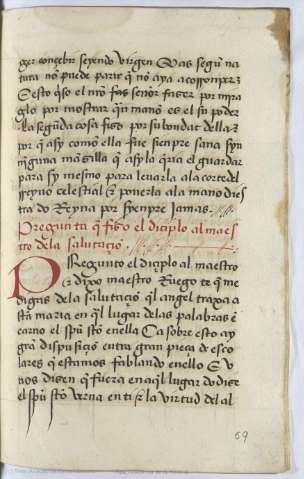 ger conçebir seyendo virgen Mas segũ na
tura nõ puede parir q̃ nõ aya acorronper ⁊
Desto q̃so el nr̃o señor fazer por mira
glo por mostrar quãmano es el su poder
La segũda cosa fizo por su bondat della ⁊
por q̃ asy commo ella fue sienpre sana syn
ninguna manzilla q̃ asy la q̃ria el guardar
para sy mesmo para levarla ala corte del
rreyno celestial ⁊ ponerla ala mano dies
tra do Reyna por syenpre jamas
Pregunta q̃ fizo el diçiplo al maes
tro dela salutaçiõ
Pregunto el diçiplo al maestro
⁊ dixo maestro Ruego te q̃ me
digas dela salutaçiõ q̃l angel traxo a
sta maria en q̃l lugar delas palabras ẽ
carno el spũ stõ enella Ca sobre esto ay
grã dispuisiçõ entra gran pieça de esco
lares q̃ estamos fablando enello E v
nos dizen q̃ fuera en aq̃l lugar do dize
el spũ stõ verna en ti ⁊ la virtud del al
69